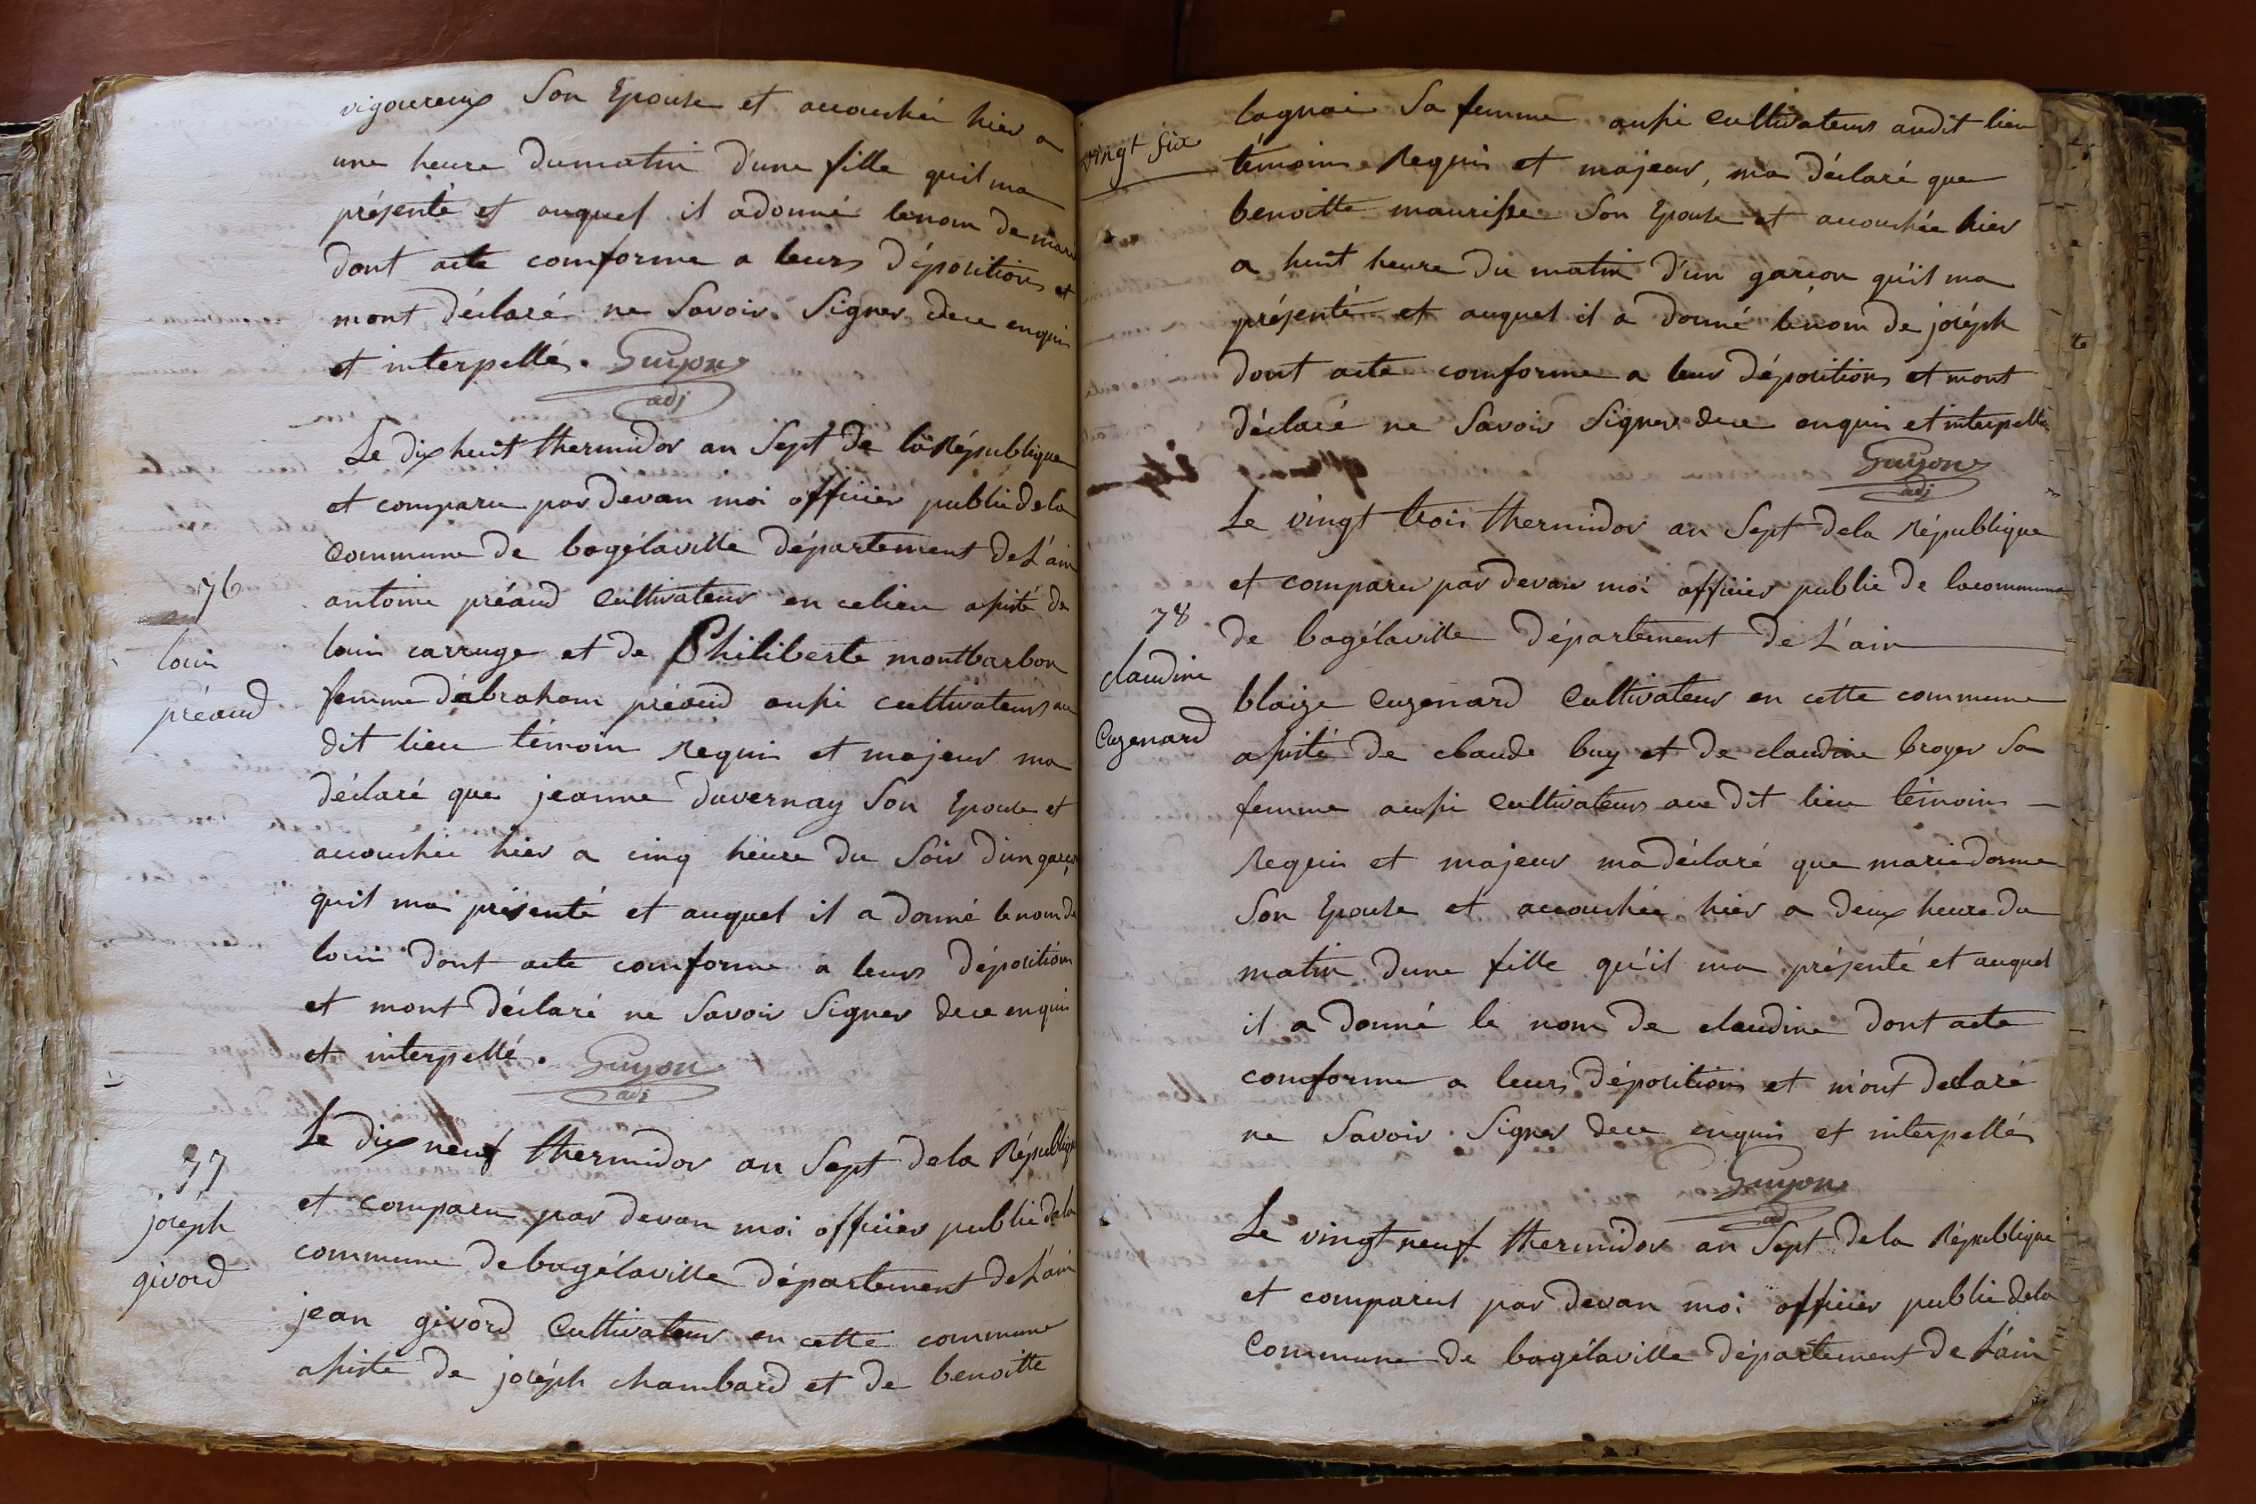 vigoureux Son Epouse et accouchée hier a
une heure dumatin d'une fille quil ma
présenté et auquel il adonné lenom de marie
dont acte comforme a leurs dépositions et
mont déclaré ne Savoir Signer dece enquis
et interpellé. Guyon
adj
Le dix huit thermidor an Sept de la République
et comparu par devan moi officier public dela
commune de bagélaville département de L'ain
76
antoine préaud Cultivateur en celieu assisté de
louis
louis carruge et de Philiberte montbarbon
préaud
femme d'abraham préaud aussi cultivateurs au
dit lieu témoin Requis et majeur ma
déclaré que jeanne duvernay Son Epouse et
accouchée hier a cinq heure du Soir d'un garçon
quil ma présenté et auquel il a donné lenom de
louis dont acte comforme a leurs déposition
et mont déclaré ne Savoir Signer dece enquis
et interpellé. Guyon
adj
Le dix neuf thermidor an Sept dela République
77
et comparu par devan moi officier public dela
joseph
commune debagélaville département de L'ain
givord
jean givord Cultivateur en cette commune
assisté de joséph chambard et de benoitte
vingt Six
lagnai Sa femme aussi Cultivateurs audit lieu
témoins Requis et majeur, ma déclaré que
benoitte maurisse Son Epouse et accouchée hier
a huit heure du matin d'un garcon qu'il ma
présenté et auquel il a donné lenom de joséph
dont acte comforme a leur dépositions et mont
déclaré ne Savoir Signer dece enquis et interpellé
Guyon
adj
Le vingt trois thermidor an Sept dela République
et comparu par devan moi officier public de lacommune
78
de bagélaville département de L'ain
claudine
blaize Cuzenard Cultivateur en cette commune
Cuzenard
assisté de claude buy et de claudine broyer Sa
femme aussi Cultivateurs au dit lieu témoins
Requis et majeur madéclaré que marie dorme
Son Epouse et accouchée hier a deux heure du
matin dune fille qu'il ma présenté et auquel
il a donné le nom de claudine dont acte
comforme a leurs dépositions et m'ont declaré
ne Savoir Signer dece enquis et interpellés
Guyon
adj
Le vingt neuf thermidor an Sept dela République
et comparut par devan moi officier public dela
Commune de bagélaville département de L'ain